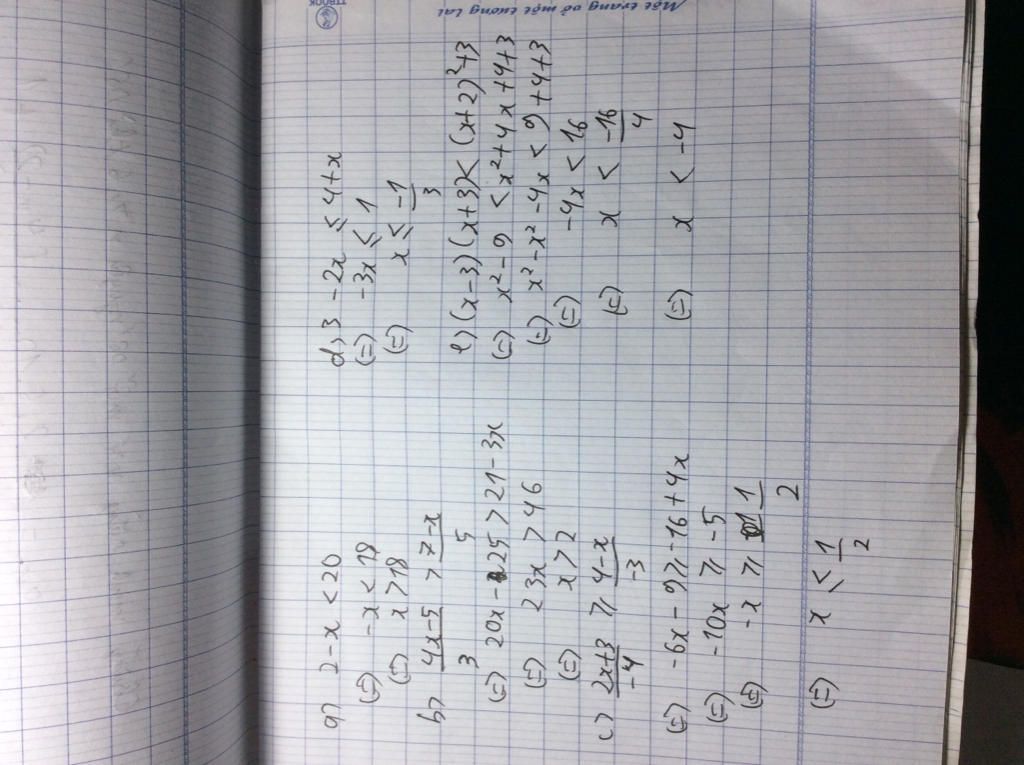 Một trang vở một tương lai
TTBOOK
a) 2 - x < 20
(=) -x < 18
(=) x > 18
b) \frac{4x-5}{3} > \frac{7-x}{5}
(=) 20x - 25 > 21 - 3x
(=) 23x > 46
(=) x > 2
c) \frac{2x+3}{-4} ≥ \frac{4-x}{-3}
(=) -6x - 9 ≥ -16 + 4x
(=) -10x ≥ -5
(=) -x ≥ \frac{1}{2}
(=) x ≤ \frac{1}{2}
d) 3 - 2x ≤ 4 + x
(=) -3x ≤ 1
(=) x ≤ \frac{-1}{3}
e) (x-3)(x+3) < (x+2)^2 + 3
(=) x^2 - 9 < x^2 + 4x + 4 + 3
(=) x^2 - x^2 - 4x < 9 + 4 + 3
(=) -4x < 16
(=) x < \frac{-16}{4}
(=) x < -4